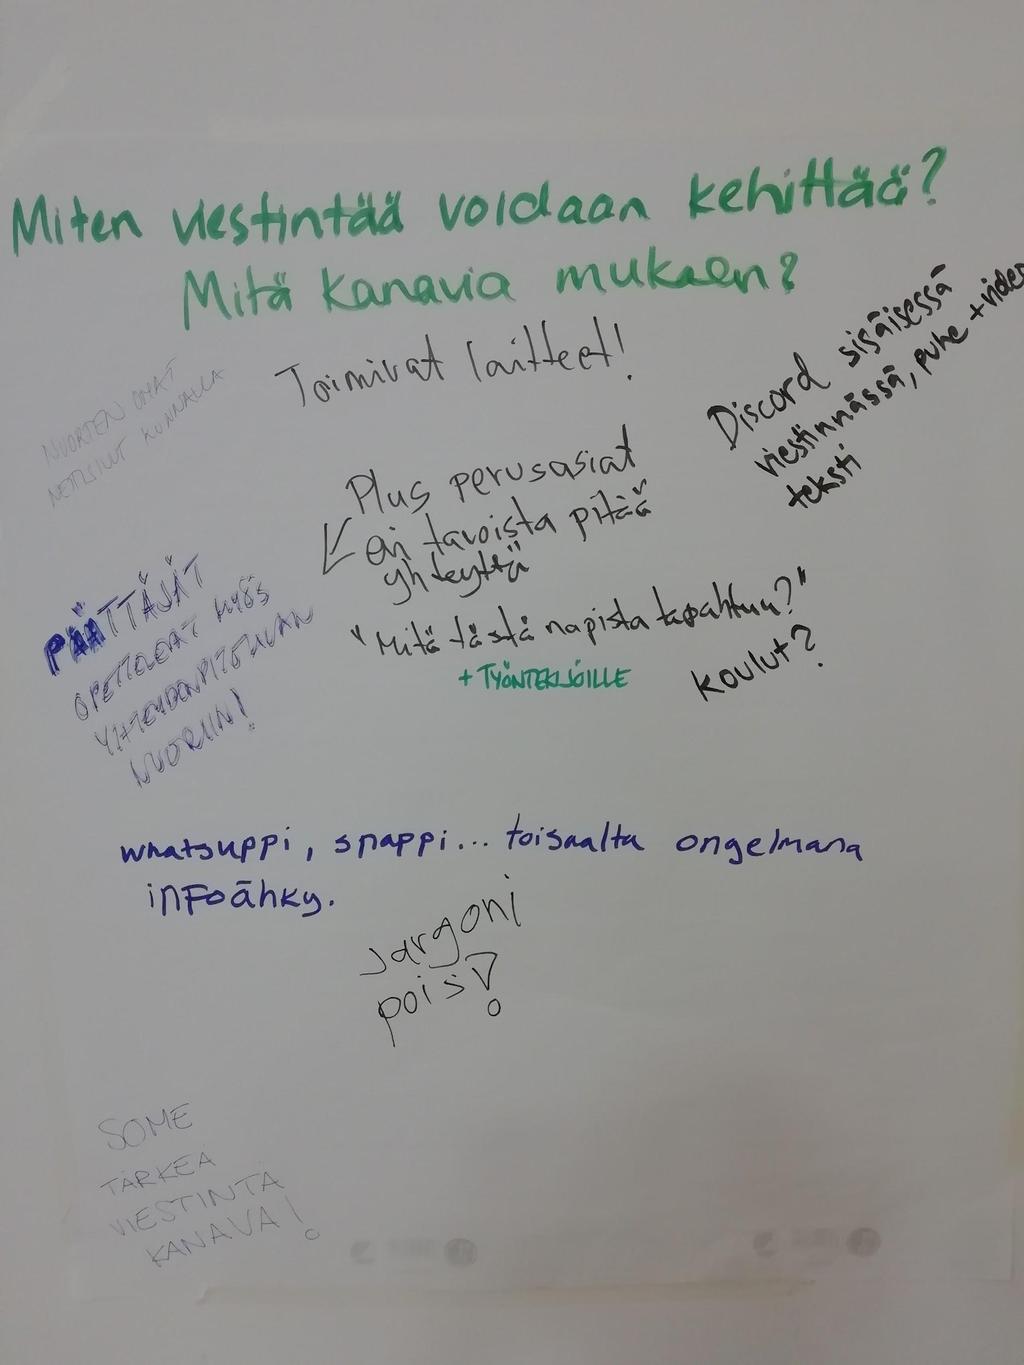 Miten viestintää voidaan kehittää?
Mitä kanavia mukaan?
Toimivat laitteet!
Discord sisäisessä
viestinnässä, puhe + video
teksti
NUORTEN OMAT
NETTISIVUT KUNNALLA
Plus perusasiat
eri tavoista pitää
yhteyttä
"Mitä tästä napista tapahtuu?"
+ TYÖNTEKIJÖILLE
koulut?
PÄÄTTÄJÄT
OPETTELEVAT MYÖS
YHTEYDENPITOTAVAN
NUORIIN!
whatsuppi, snappi... toisaalta ongelmana
infoähky.
Jargoni
pois!
SOME
TÄRKEÄ
VIESTINTÄ
KANAVA!